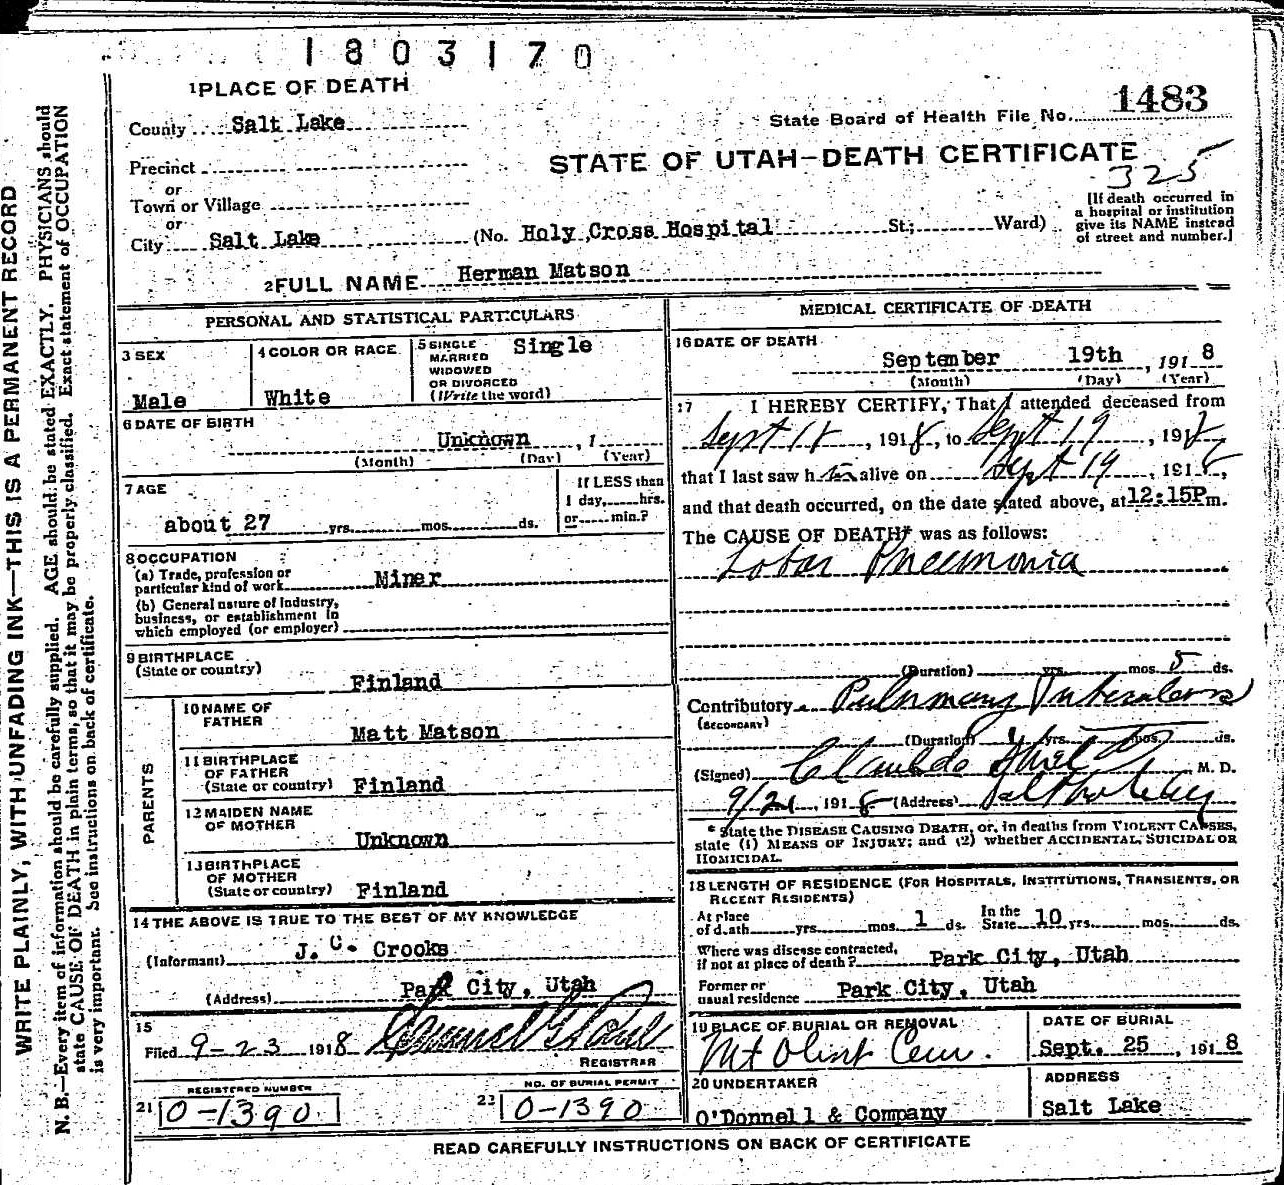 1803170
1 PLACE OF DEATH
County Salt Lake
State Board of Health File No. 1483
Precinct
STATE OF UTAH—DEATH CERTIFICATE
325
or
Town or Village
or
City Salt Lake (No. Holy Cross Hospital St.; Ward)
[If death occurred in
a hospital or institution
give its NAME instead
of street and number.]
2 FULL NAME Herman Matson
PERSONAL AND STATISTICAL PARTICULARS
3 SEX
Male
4 COLOR OR RACE
White
5 SINGLE
MARRIED
WIDOWED
OR DIVORCED
(Write the word)
Single
6 DATE OF BIRTH
Unknown , 1
(Month) (Day) (Year)
7 AGE
about 27 yrs. mos. ds.
If LESS than
1 day, hrs.
or min.?
8 OCCUPATION
(a) Trade, profession or
particular kind of work Miner
(b) General nature of Industry,
business, or establishment in
which employed (or employer)
9 BIRTHPLACE
(State or country)
Finland
PARENTS
10 NAME OF
FATHER
Matt Matson
11 BIRTHPLACE
OF FATHER
(State or country) Finland
12 MAIDEN NAME
OF MOTHER
Unknown
13 BIRTHPLACE
OF MOTHER
(State or country) Finland
14 THE ABOVE IS TRUE TO THE BEST OF MY KNOWLEDGE
(Informant) J. C. Crooks
(Address) Park City, Utah
15
Filed 9-23 1918
REGISTRAR
REGISTERED NUMBER
21 0-1390
NO. OF BURIAL PERMIT
22 0-1390
MEDICAL CERTIFICATE OF DEATH
16 DATE OF DEATH
September 19th , 1918
(Month) (Day) (Year)
17 I HEREBY CERTIFY, That I attended deceased from
Sept 18, 1918, to Sept 19, 1918
that I last saw him alive on Sept 19, 1918,
and that death occurred, on the date stated above, at 12:15P m.
The CAUSE OF DEATH* was as follows:
Lobar Pneumonia
(Duration) yrs. mos. 5 ds.
Contributory Pulmonary Tuberculosis
(SECONDARY)
(Duration) 1 yrs. mos. ds.
(Signed) M. D.
9/21, 1918 (Address) Salt Lake City
* State the DISEASE CAUSING DEATH, or, in deaths from VIOLENT CAUSES,
state (1) MEANS OF INJURY; and (2) whether ACCIDENTAL, SUICIDAL OR
HOMICIDAL.
18 LENGTH OF RESIDENCE (FOR HOSPITALS, INSTITUTIONS, TRANSIENTS, OR
RECENT RESIDENTS)
At place
of death yrs. mos. 1 ds. In the
State 10 yrs. mos. ds.
Where was disease contracted,
if not at place of death? Park City, Utah
Former or
usual residence Park City, Utah
19 PLACE OF BURIAL OR REMOVAL
Mt Olivet Cem.
DATE OF BURIAL
Sept. 25, 1918
20 UNDERTAKER
O'Donnell & Company
ADDRESS
Salt Lake
READ CAREFULLY INSTRUCTIONS ON BACK OF CERTIFICATE
WRITE PLAINLY, WITH UNFADING INK—THIS IS A PERMANENT RECORD
N. B.—Every item of information should be carefully supplied. AGE should be stated EXACTLY. PHYSICIANS should
state CAUSE OF DEATH in plain terms, so that it may be properly classified. Exact statement of OCCUPATION
is very important. See instructions on back of certificate.